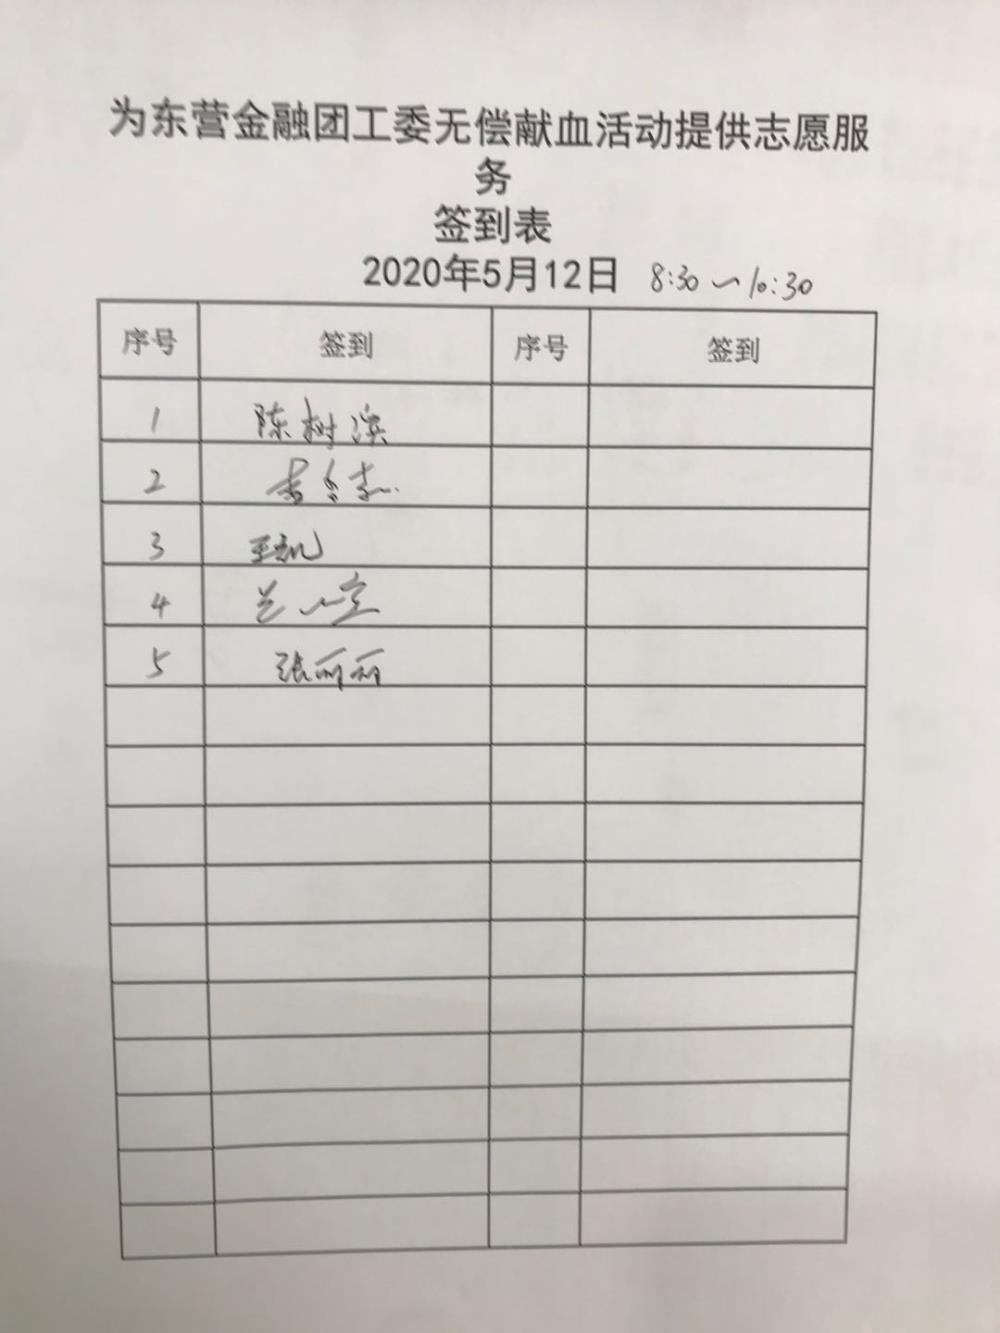 为东营金融团工委无偿献血活动提供志愿服
务
签到表
2020年5月12日 8:30~10:30
序号 签到 序号 签到
1 陈树滨
2
3 王凯
4
5 张丽丽